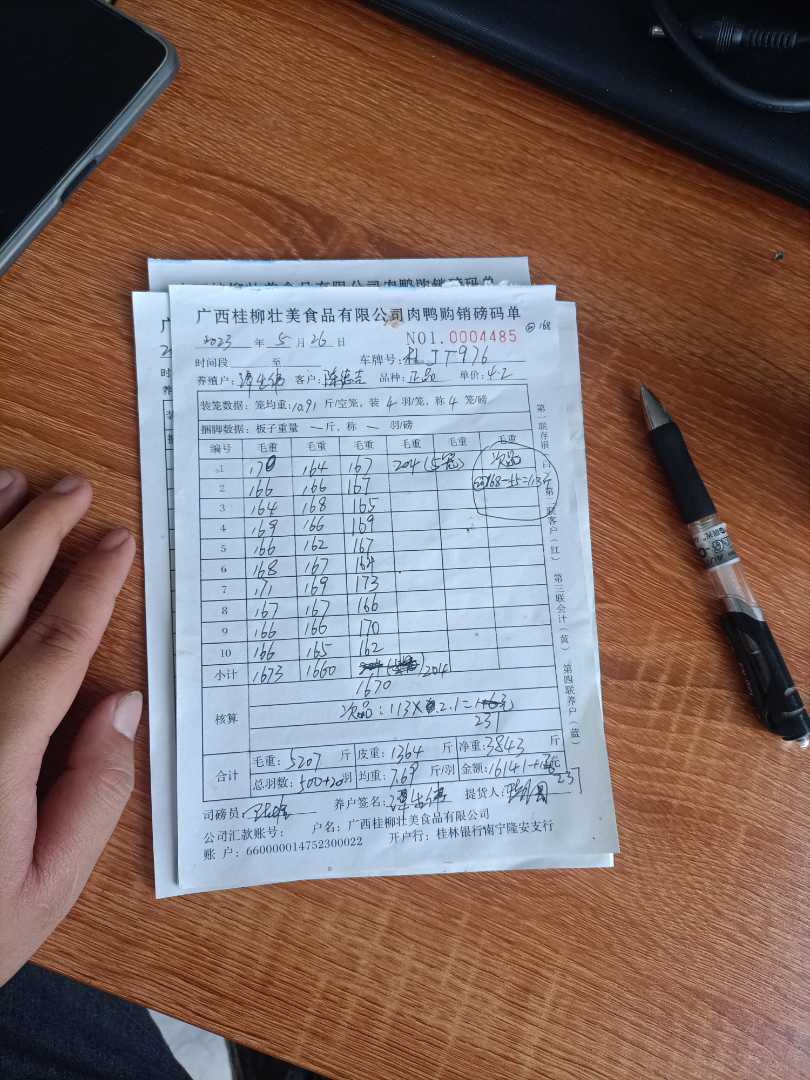 广西桂柳壮美食品有限公司肉鸭购销磅码单
2023 年 5 月 26 日 NO1.0004485 168
时间段 至 车牌号: JT976
养殖户: 客户: 品种: 正品 单价: 4.2
装笼数据: 笼均重: 10.91 斤/空笼, 装 4 羽/笼, 称 4 笼/磅
捆脚数据: 板子重量 — 斤, 称 — 羽/磅
编号 毛重 毛重 毛重 毛重 毛重 毛重
1 170 164 167 204 次品
2 166 166 167 168-55=113
3 164 168 165
4 169 166 169
5 166 162 167
6 168 167 164
7 171 169 173
8 167 167 166
9 166 166 170
10 166 165 162
小计 1673 1660 204
1670
核算 次品: 113× 2.1=
231
合计 毛重: 5207 斤 皮重: 1364 斤 净重: 3843 斤
总羽数: 500+20 羽 均重: 7.69 斤/羽 金额: 16141+ 元
237
司磅员: 养户签名: 提货人:
公司汇款账号: 户名: 广西桂柳壮美食品有限公司
账 户: 660000014752300022 开户行: 桂林银行南宁隆安支行
第二联客户(红) 第三联会计(黄) 第四联养户(蓝)